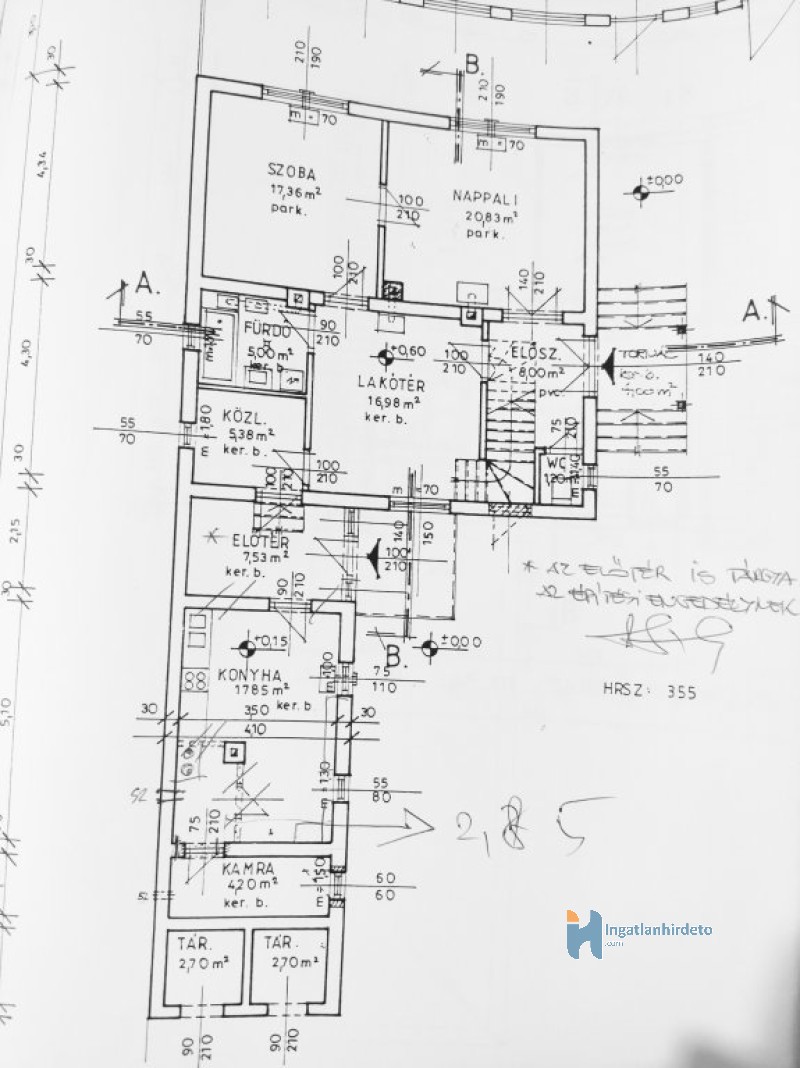 210
190
B
210
190
m 70
m 70
4,34
30
SZOBA
17,36 m²
park.
NAPPALI
20,83 m²
park.
±0,00
100
210
30
100
210
140
210
A.
A.
55
70
FÜRDŐ
5,00 m²
ker. b.
90
210
+0,60
LAKÓTÉR
16,98 m²
ker. b.
100
210
ELŐSZ.
8,00 m²
pvc.
140
210
4,30
55
70
KÖZL.
5,38 m²
ker. b.
1,80
E
100
210
75
210
WC
1,20
55
70
30
100
210
m 70
140
150
2,15
ELŐTÉR
7,53 m²
ker. b.
100
210
* AZ ELŐTÉR IS TÁRGYA
AZ ÉPÍTÉSI ENGEDÉLYNEK
30
90
210
+0,15
±0,00
B.
KONYHA
17,85 m²
ker. b.
100
75
110
HRSZ: 355
30
350
30
410
5,10
130
55
80
2,85
75
210
KAMRA
4,20 m²
ker. b.
150
E
60
60
TÁR.
2,70 m²
TÁR.
2,70 m²
90
210
90
210
Ingatlanhirdeto
.com